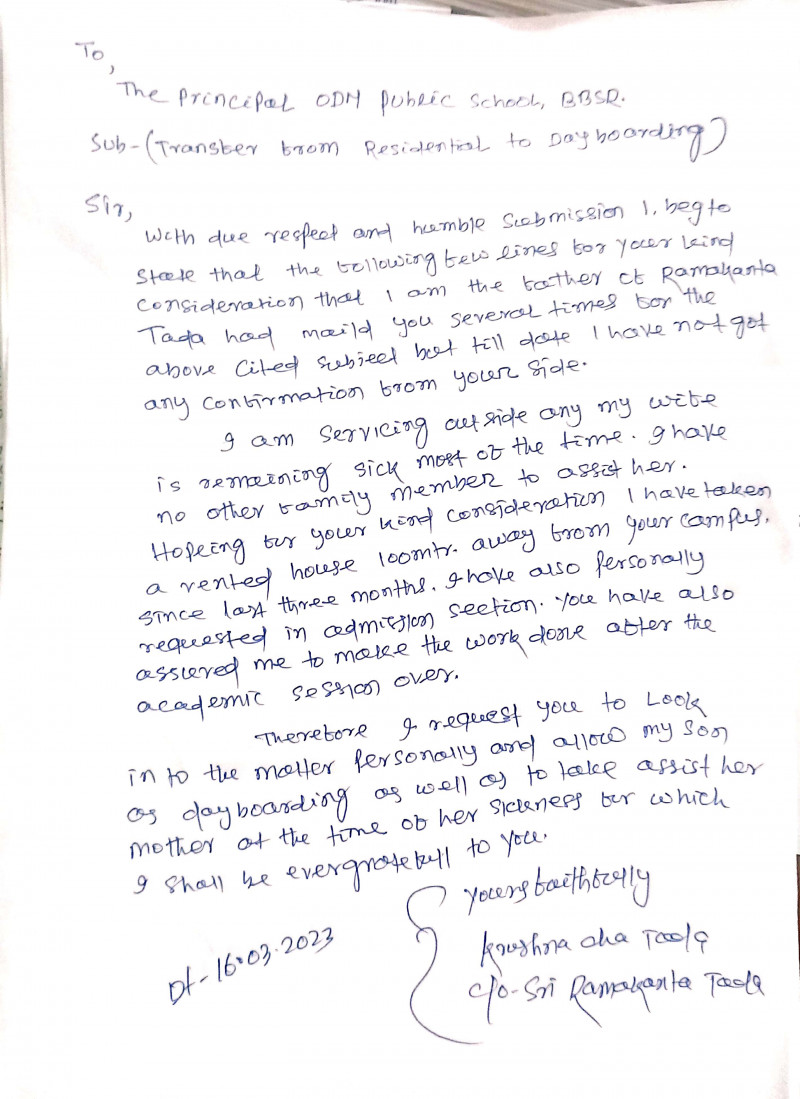 To,
The Principal ODM Public School, BBSR.
Sub-(Transfer from Residential to Dayboarding)
Sir,
With due respect and humble Submission I. beg to
state that the following few lines for your kind
consideration that I am the father of Ramakanta
Tada had maild you several times for the
above Cited subject but till date I have not got
any confirmation from your side.
I am servicing outside any my wife
is remaining sick most of the time. I have
no other family member to assist her.
Hopeing for your kind consideration I have taken
a rented house 100mtr. away from your campus.
since last three months. I have also personally
requested in admission section. You have also
assured me to make the work done after the
academic session over.
Therefore I request you to Look
in to the matter personally and allow my son
as dayboarding as well as to take assist her
mother at the time of her sickness for which
I shall be evergratefull to you.
Yours faithfully
Krushna cha Tada
C/o-Sri Ramakanta Tada
Dt-16.03.2023